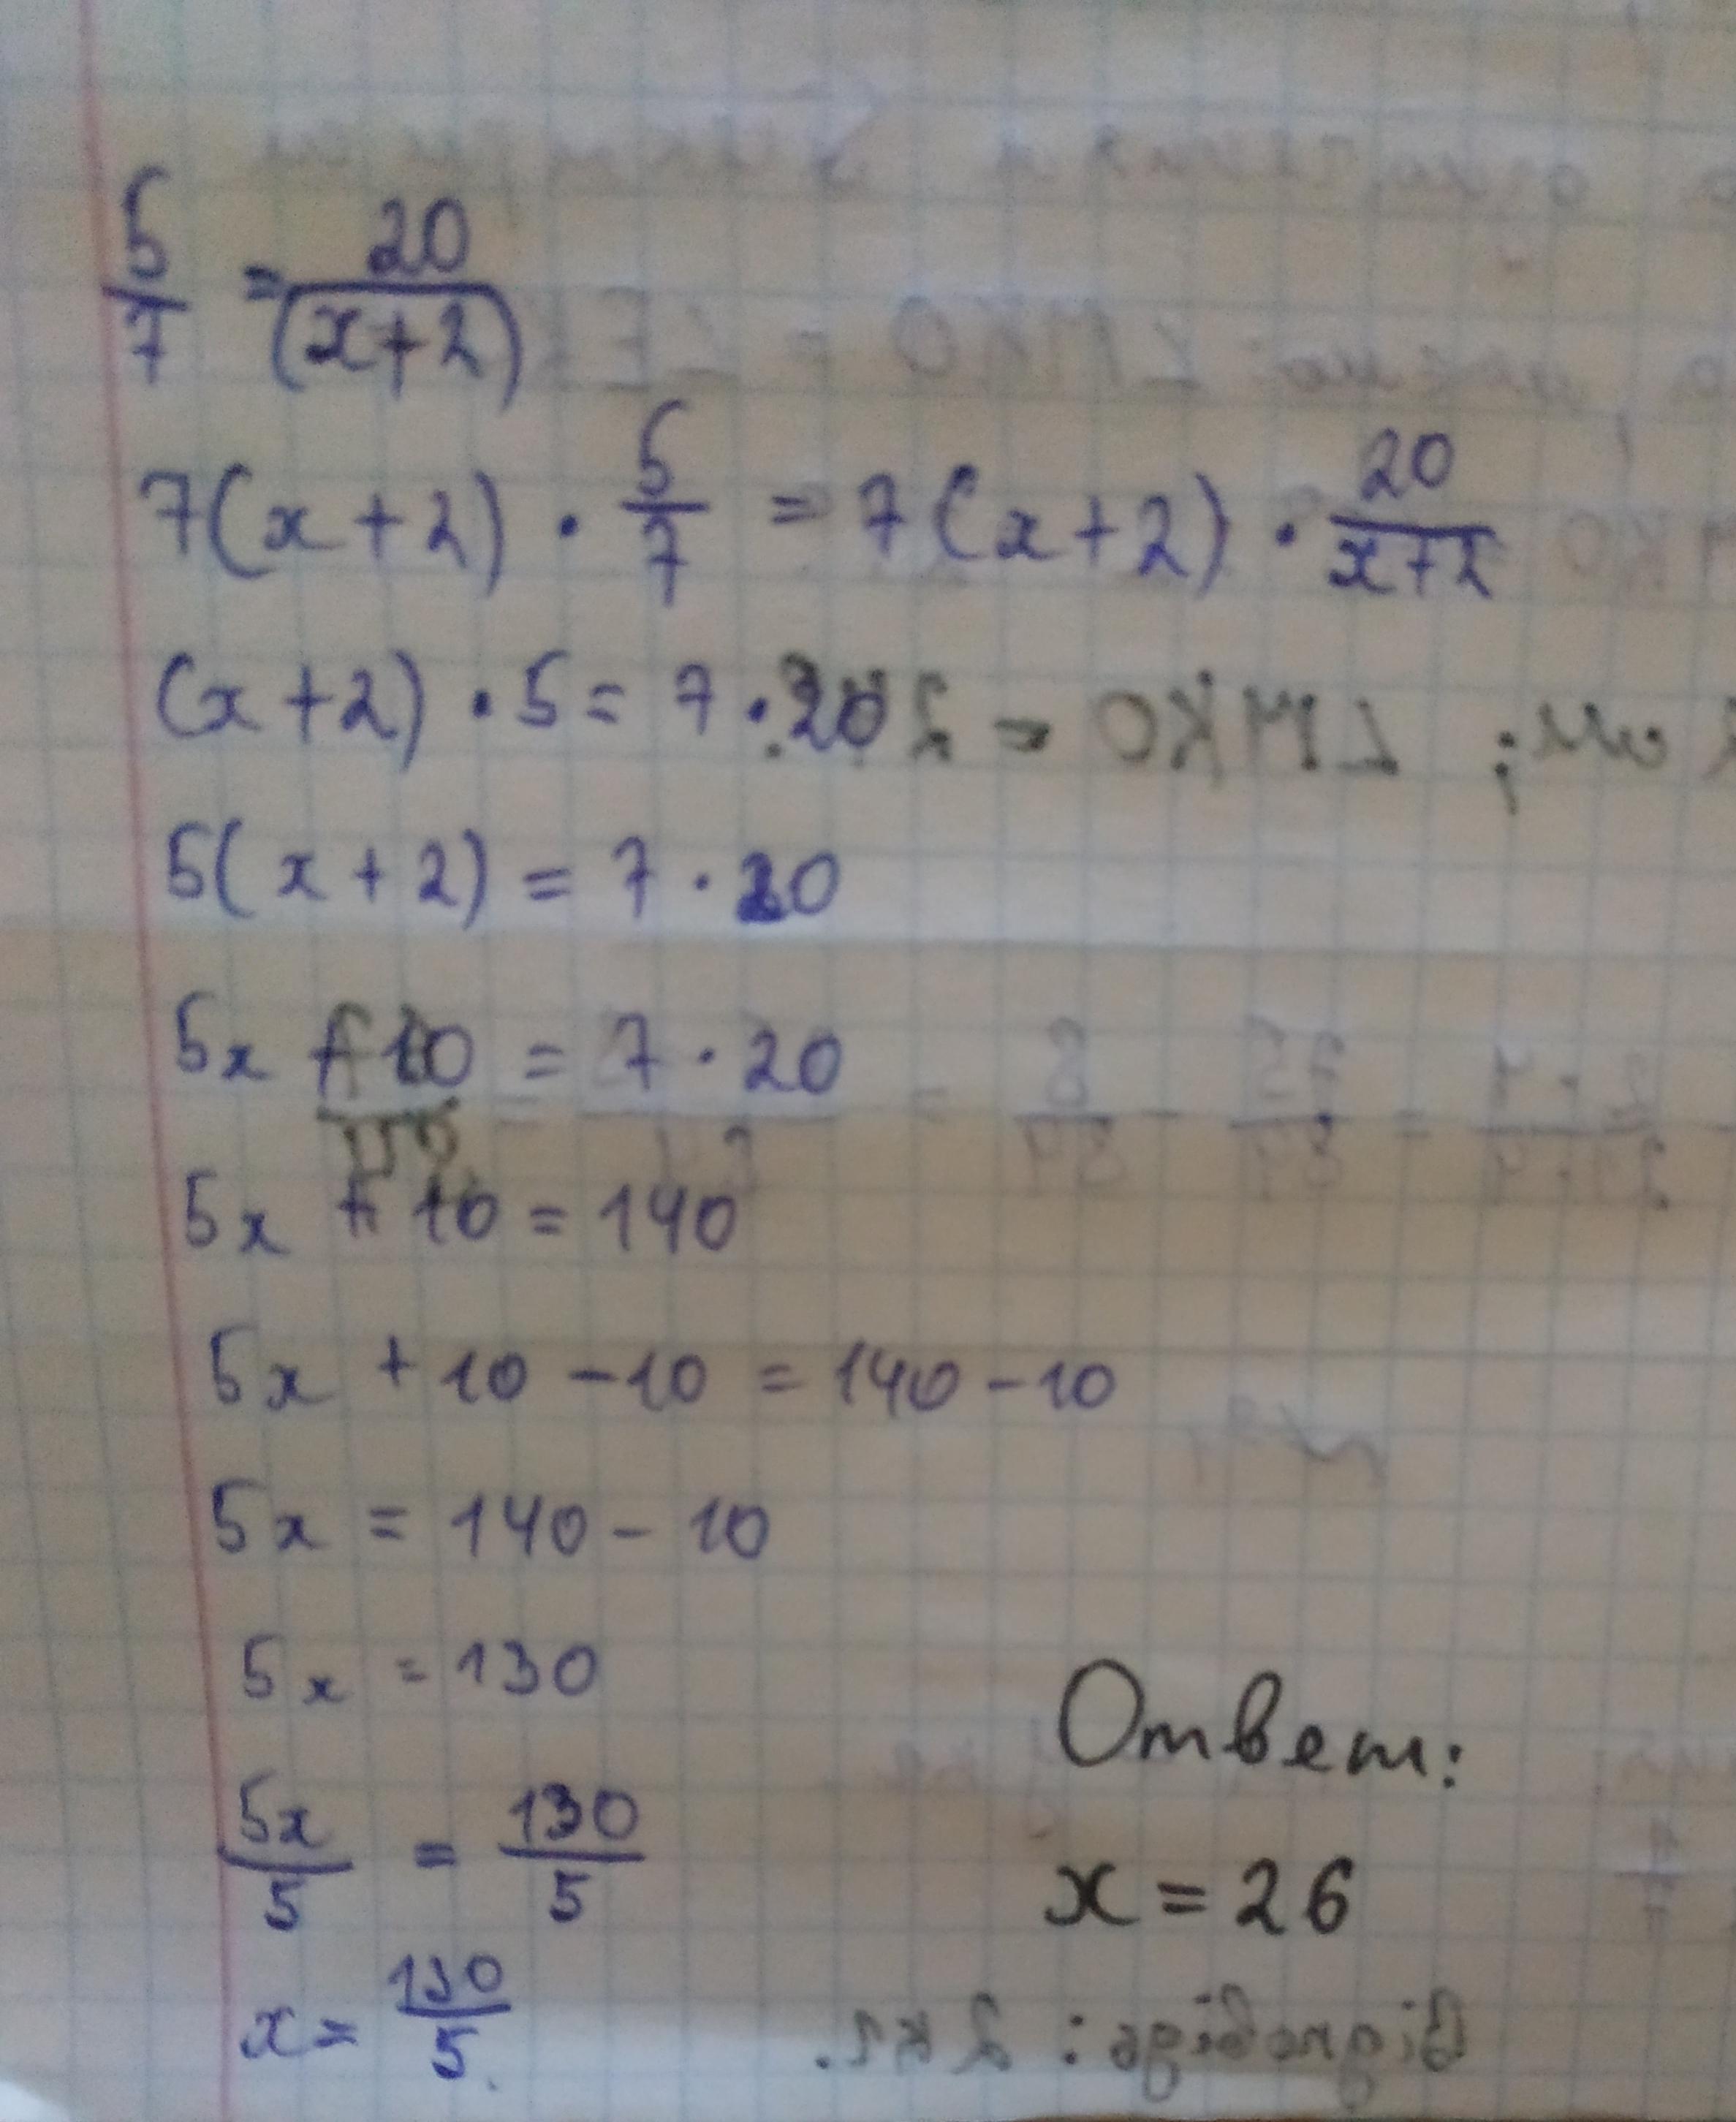 5/7 = 20/(x+2)
7(x+2) · 5/7 = 7(x+2) · 20/x+2
(x+2) · 5 = 7 · 20
5(x+2) = 7 · 20
5x + 10 = 7 · 20
5x + 10 = 140
5x + 10 - 10 = 140 - 10
5x = 140 - 10
5x = 130
5x/5 = 130/5
x = 130/5
Ответ:
x = 26